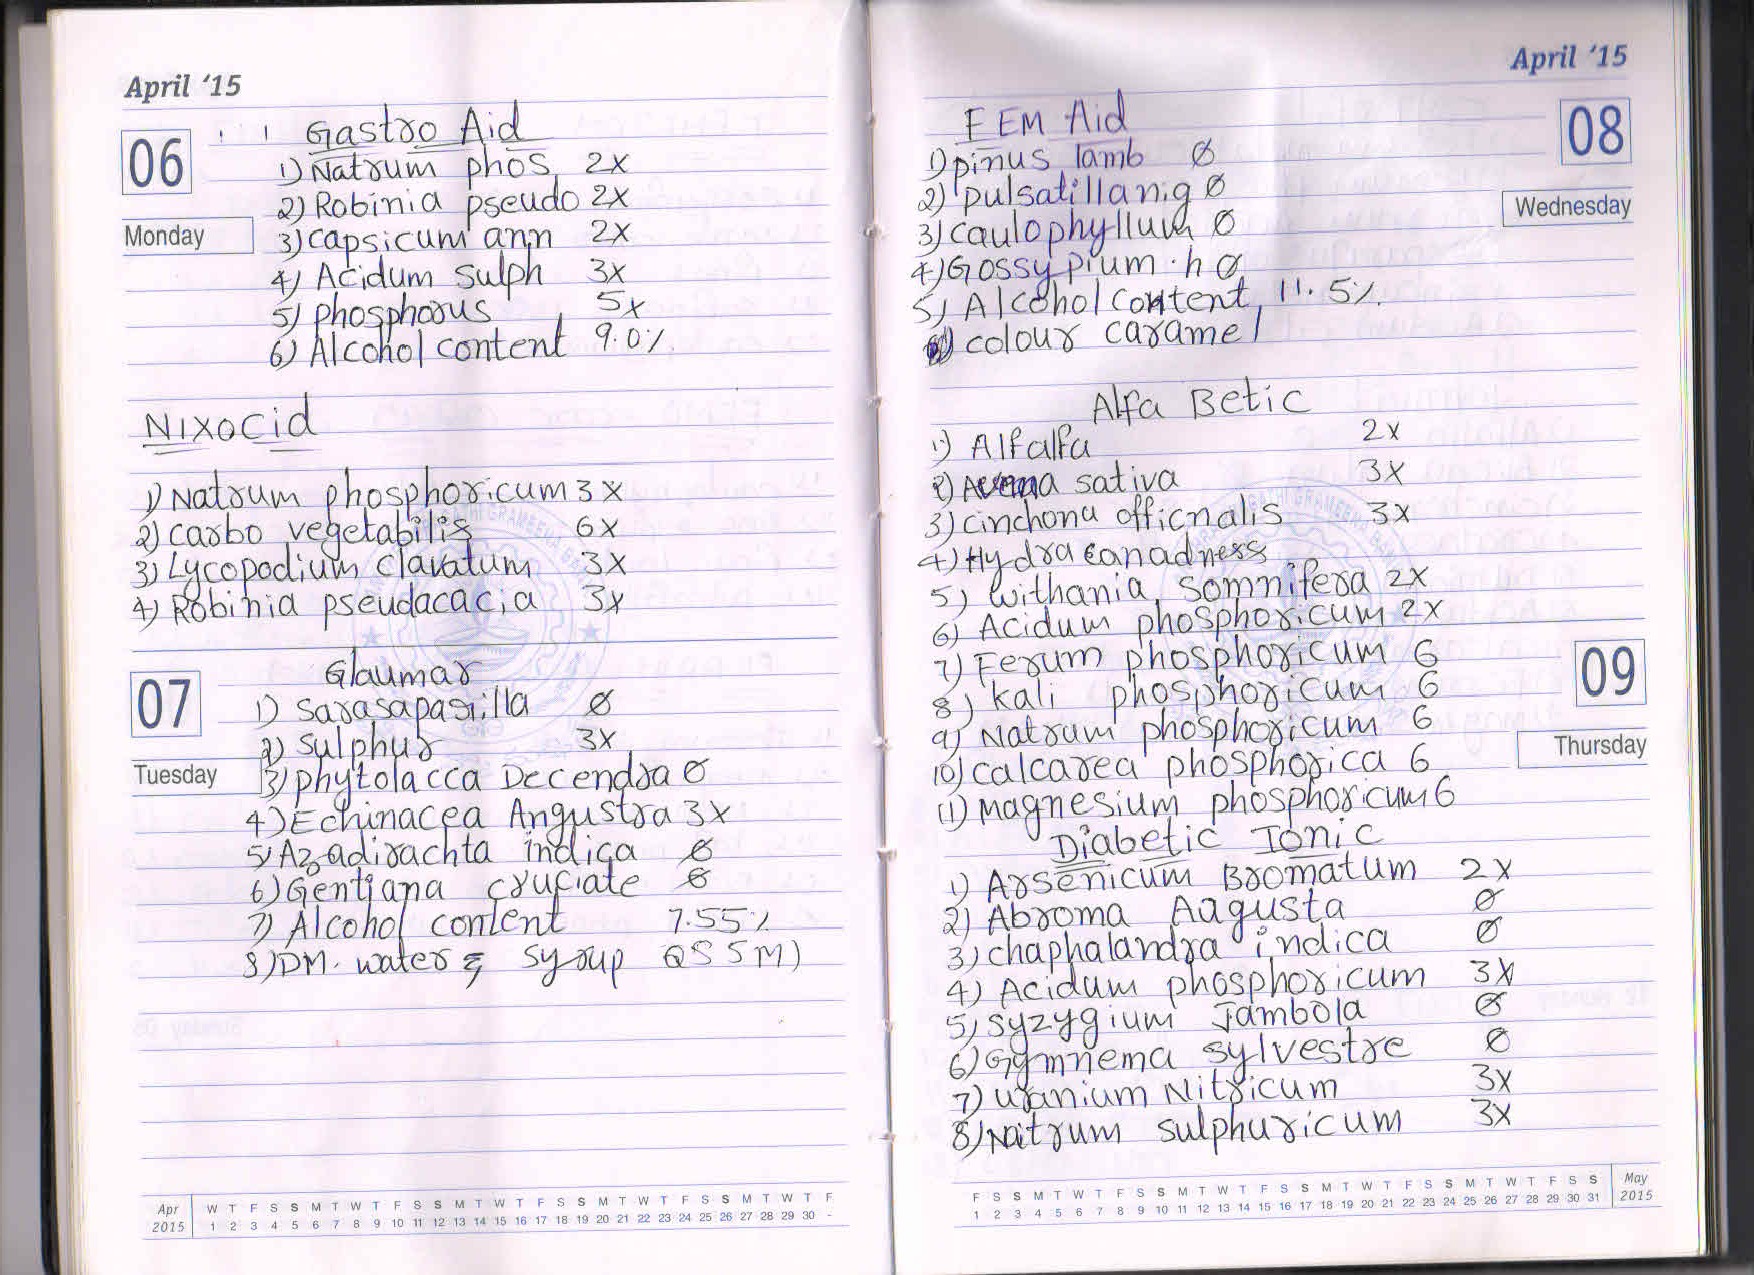 April '15
06
Monday
Gastro Aid
1) Natrum phos 2x
2) Robinia pseudo 2x
3) capsicum ann 2x
4) Acidum sulph 3x
5) phosphorus 5x
6) Alcohol content 9.0%
NIXOCID
1) Natrum phosphoricum 3x
2) carbo vegetabilis 6x
3) Lycopodium clavatum 3x
4) Robinia pseudacacia 3x
07
Tuesday
Glaumar
1) Sarasapasilla Ø
2) Sulphur 3x
3) phytolacca Decendra Ø
4) Echinacea Angustra 3x
5) Azadirachta indica Ø
6) Gentiana cruciate Ø
7) Alcohol content 7.55%
8) DM. water & syrup QS 5 Ml
Apr 2015
W T F S S M T W T F S S M T W T F S S M T W T F S S M T W T F
1 2 3 4 5 6 7 8 9 10 11 12 13 14 15 16 17 18 19 20 21 22 23 24 25 26 27 28 29 30 -
April '15
08
Wednesday
FEM Aid
1) pinus lamb Ø
2) pulsatilla nig Ø
3) caulophyllum Ø
4) Gossypium.h Ø
5) Alcohol content 11.5%
colour caramel
Alfa Betic
1) Alfalfa 2x
2) Avena sativa 3x
3) cinchona officnalis 3x
4) Hydra canadness
5) withania somnifera 2x
6) Acidum phosphoricum 2x
7) Ferum phosphoricum 6
8) kali phosphoricum 6
9) Natrum phosphoricum 6
10) calcarea phosphorica 6
11) magnesium phosphoricum 6
09
Thursday
Diabetic Tonic
1) Arsenicum Bromatum 2x
2) Abroma Aagusta Ø
3) chaphalandra indica Ø
4) Acidum phosphoricum 3x
5) syzygium Jambola Ø
6) Gymnema sylvestre Ø
7) uranium Nitricum 3x
8) Natrum sulphuricum 3x
F S S M T W T F S S M T W T F S S M T W T F S S M T W T F S S
1 2 3 4 5 6 7 8 9 10 11 12 13 14 15 16 17 18 19 20 21 22 23 24 25 26 27 28 29 30 31
May 2015